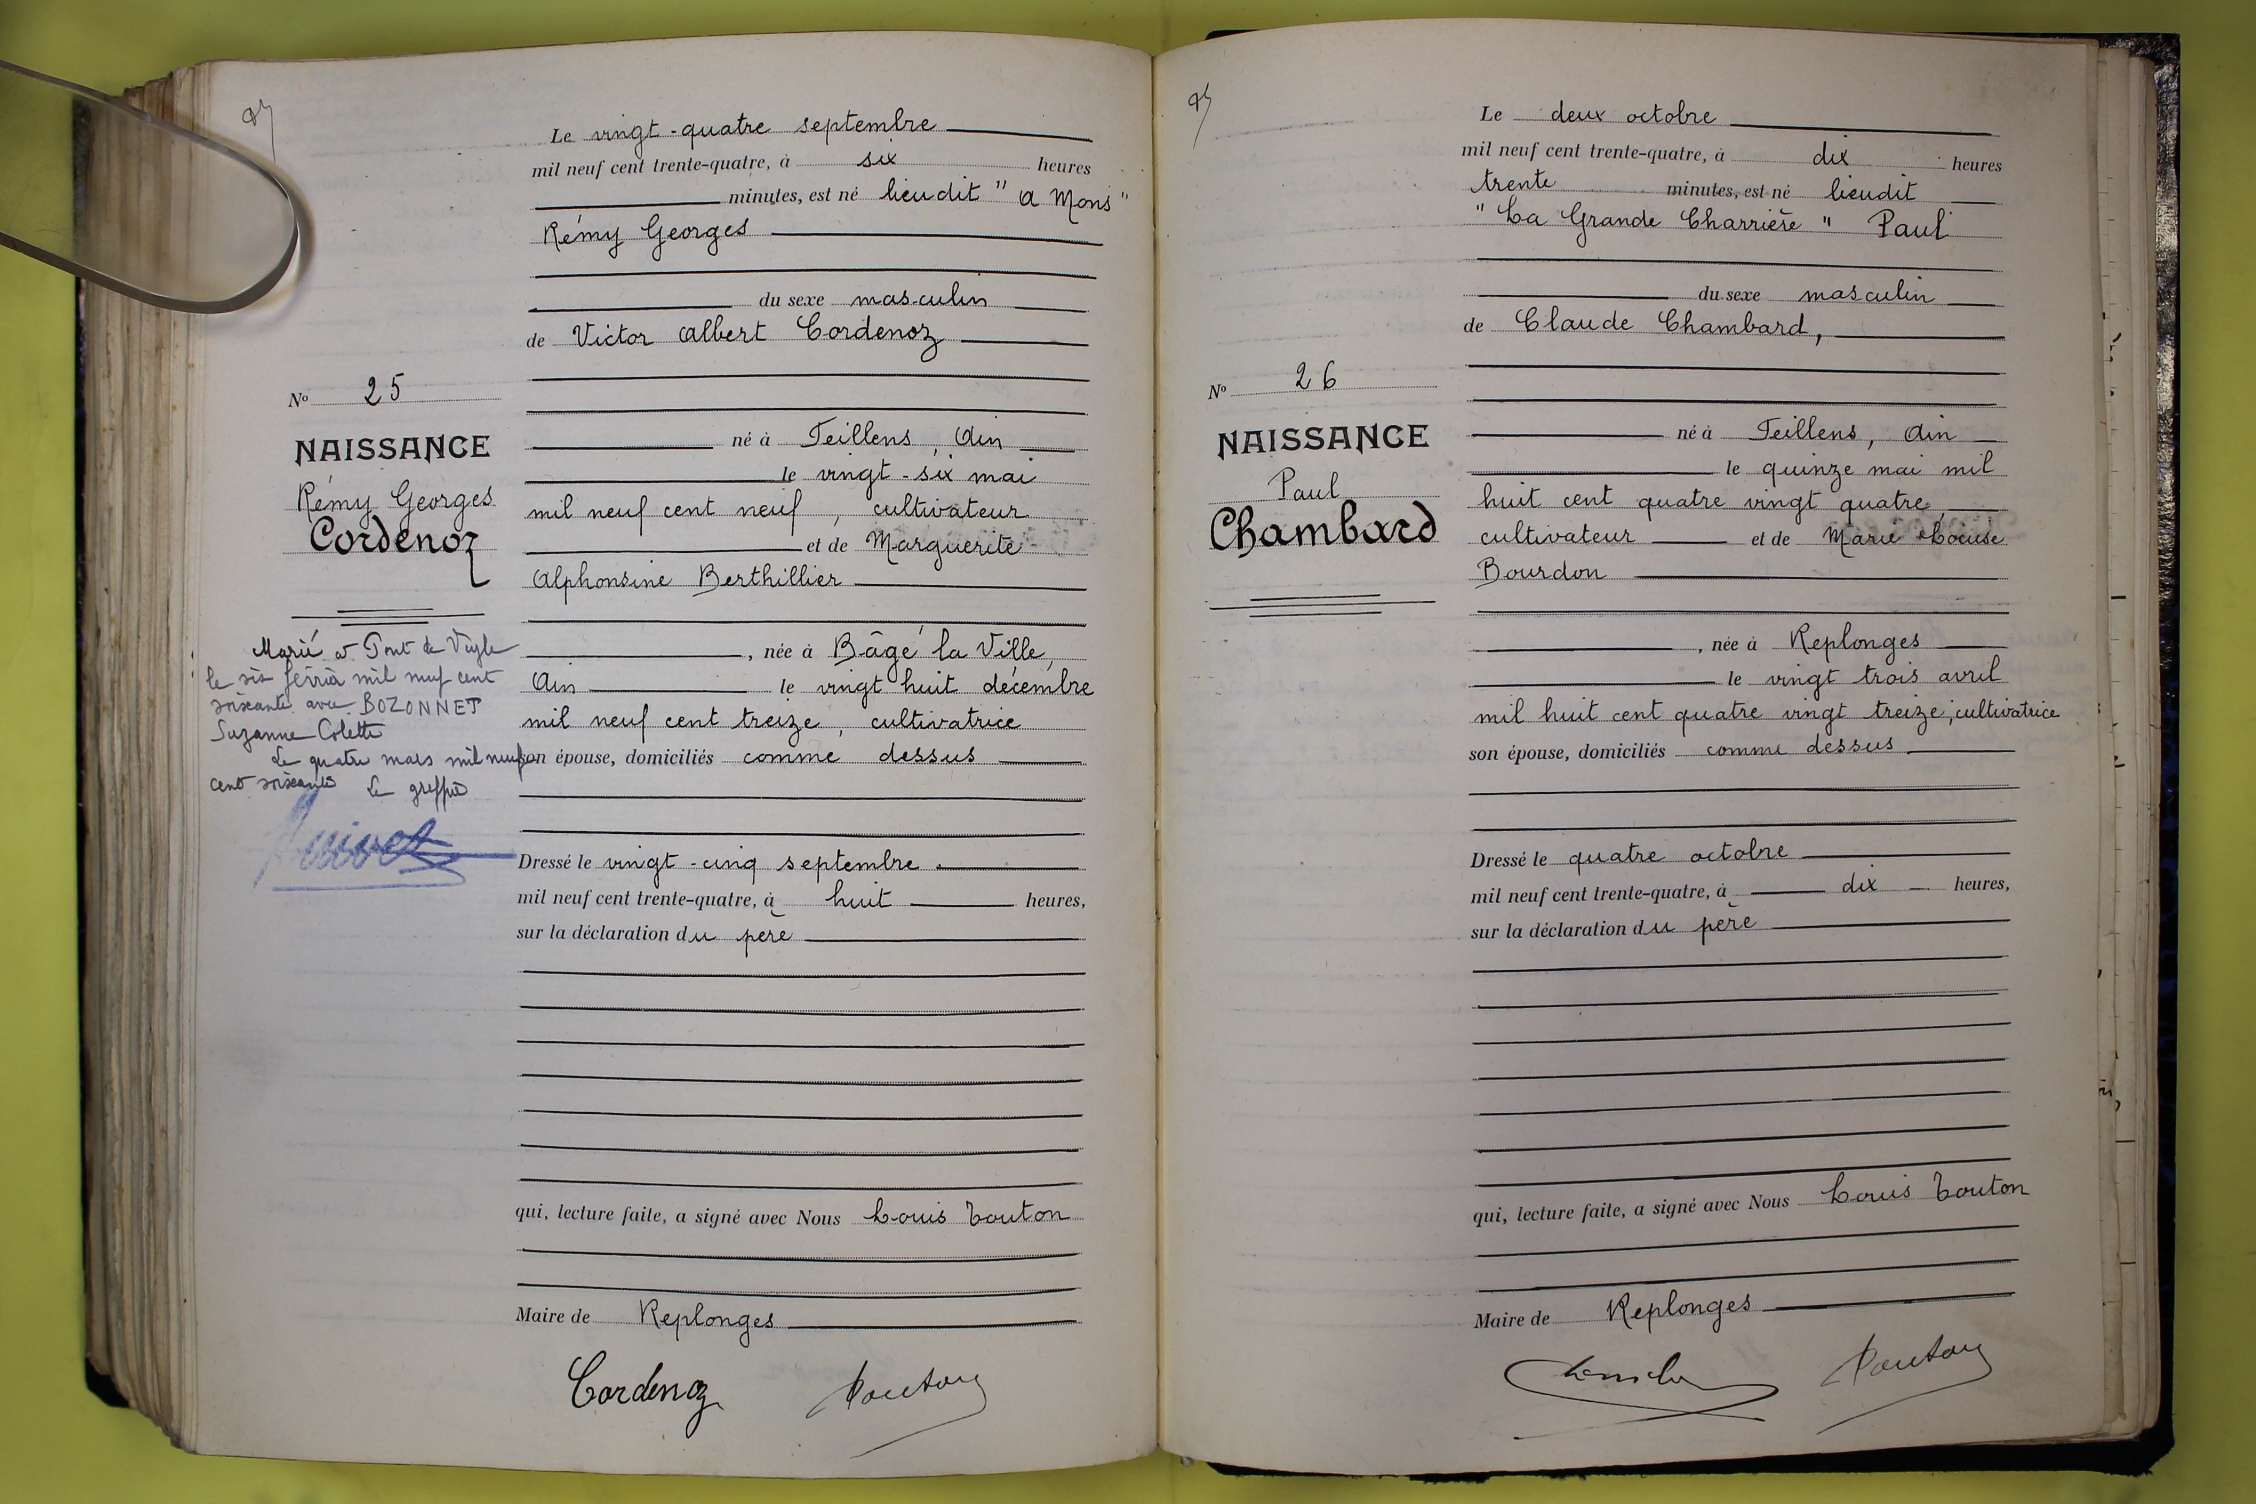 Le vingt-quatre septembre
mil neuf cent trente-quatre, à six heures
minutes, est né lieudit " a Mons "
Rémy Georges
du sexe masculin
de Victor Albert Cordenoz
né à Feillens, Ain
le vingt-six mai
mil neuf cent neuf, cultivateur
et de Marguerite
Alphonsine Berthillier
, née à Bâgé la Ville,
Ain le vingt huit décembre
mil neuf cent treize, cultivatrice
son épouse, domiciliés comme dessus
Dressé le vingt-cinq septembre
mil neuf cent trente-quatre, à huit heures,
sur la déclaration du père
qui, lecture faite, a signé avec Nous Louis Touton
Maire de Replonges
Cordenoz Touton
No 25
NAISSANCE
Rémy Georges
Cordenoz
Marié à Pont de Veyle
le six février mil neuf cent
soixante avec BOZONNET
Suzanne Colette
Le quatre mars mil neuf
cent soixante Le greffier
Le deux octobre
mil neuf cent trente-quatre, à dix heures
trente minutes, est né lieudit
" La Grande Charrière " Paul
du sexe masculin
de Claude Chambard,
né à Feillens, Ain
le quinze mai mil
huit cent quatre vingt quatre,
cultivateur et de Marie Louise
Bourdon
, née à Replonges
le vingt trois avril
mil huit cent quatre vingt treize, cultivatrice
son épouse, domiciliés comme dessus
Dressé le quatre octobre
mil neuf cent trente-quatre, à dix heures,
sur la déclaration du père
qui, lecture faite, a signé avec Nous Louis Touton
Maire de Replonges
Touton
No 26
NAISSANCE
Paul
Chambard